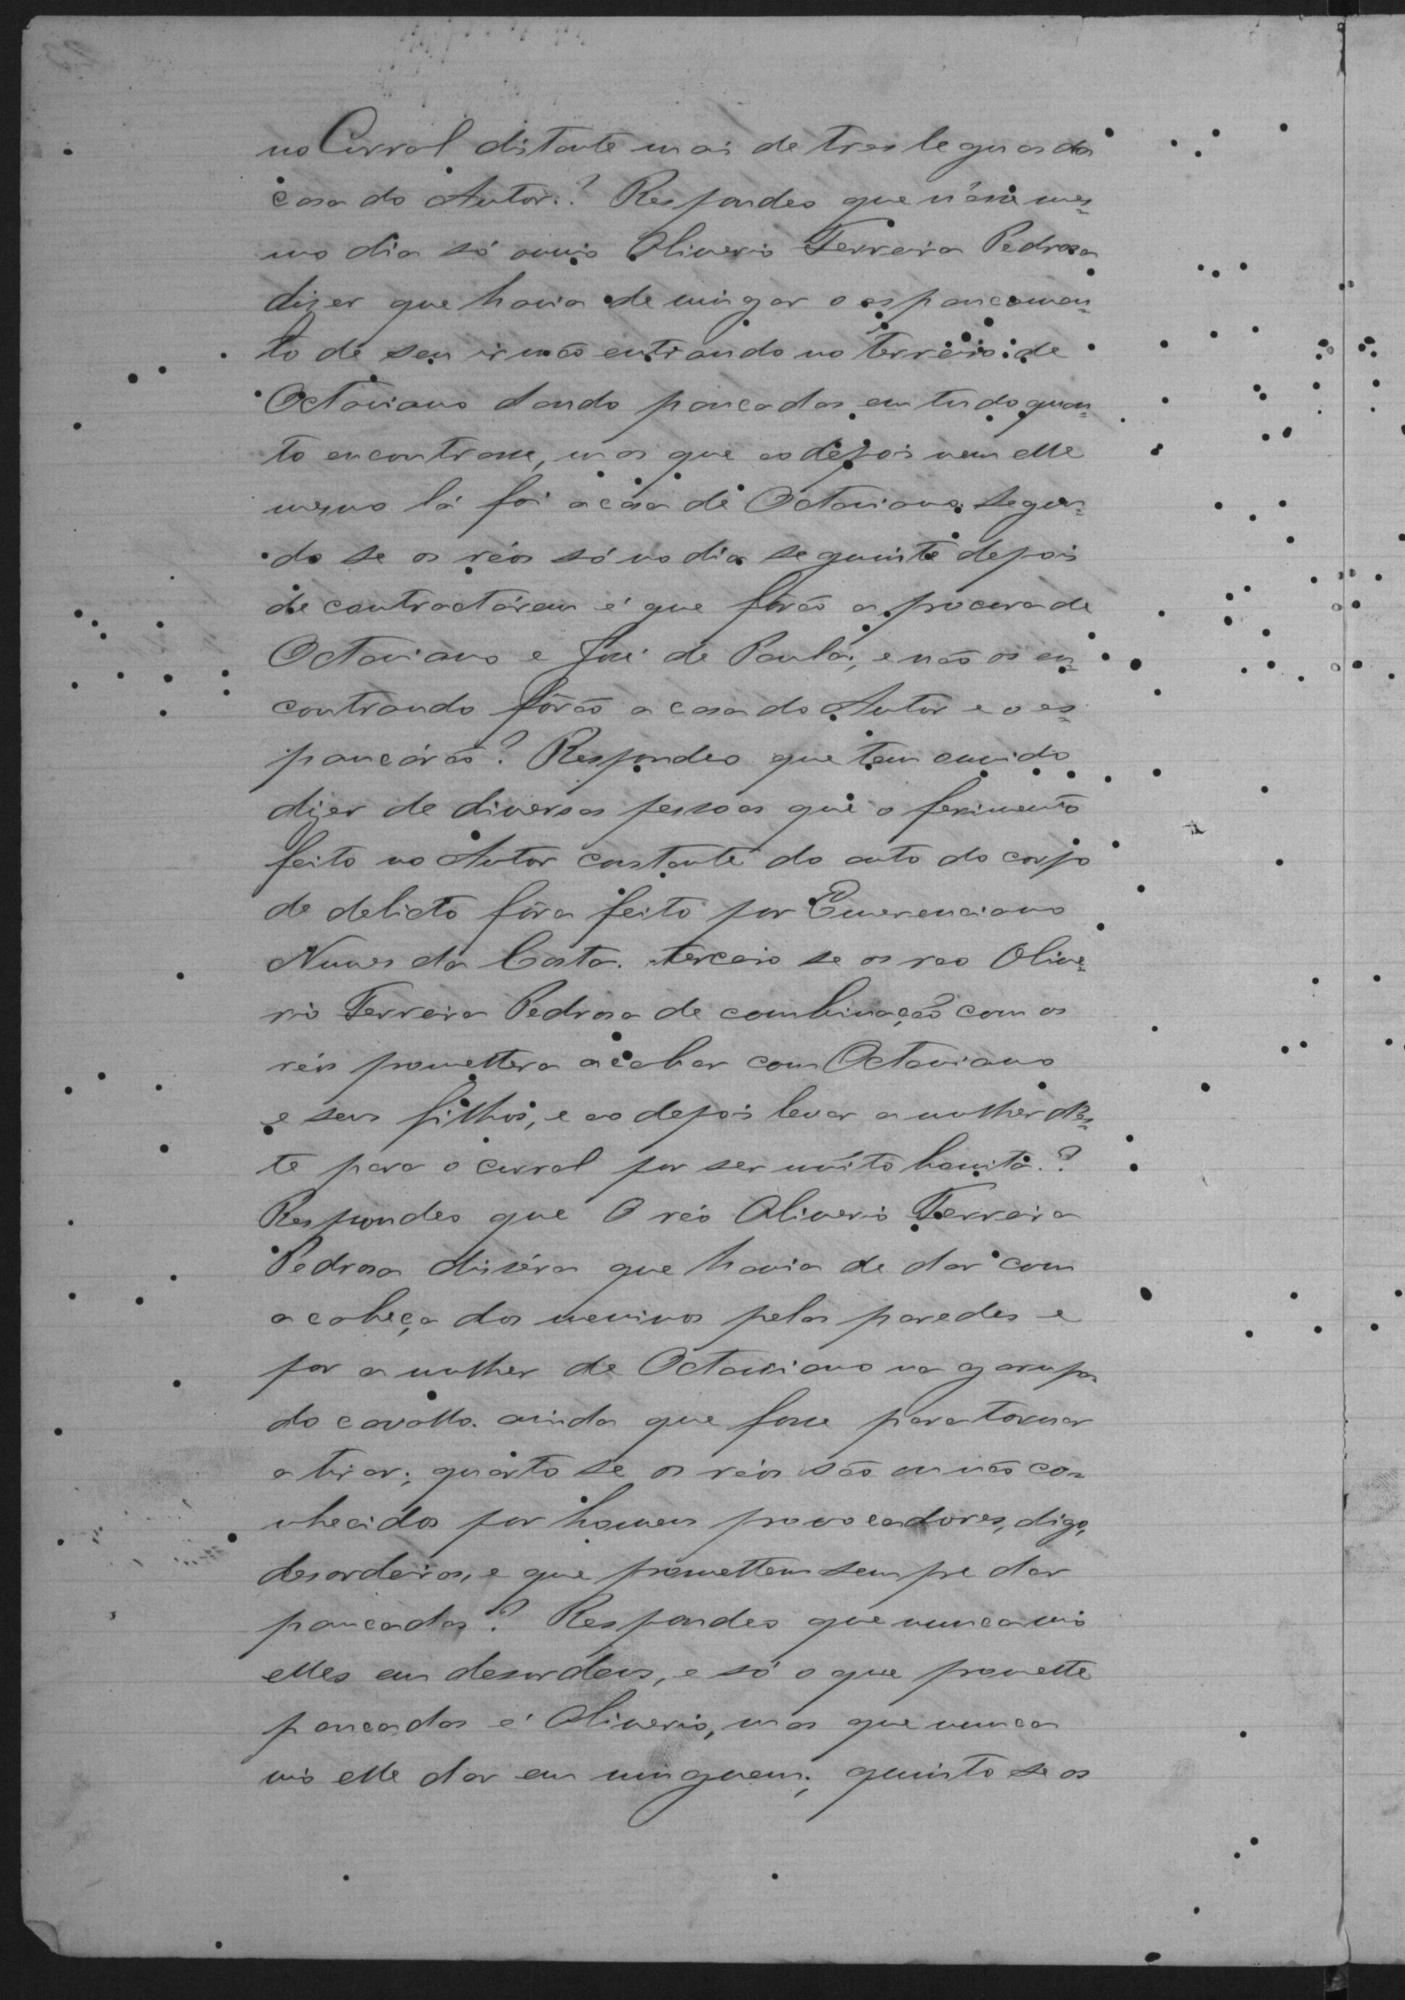 no Curral distante mais de tres leguas da
casa do Autor.? Respondeo que n'esse mes-
mo dia só ouvio Oliverio Ferreira Pedrosa
dizer que havia de vingar o espancamen-
to de seu irmão entrando no terreiro de
Octaviano dando pancadas em tudo quan-
to encontrasse, mas que ao depois nem elle
mesmo lá foi a casa de Octaviano. Segun-
do se os réos só no dia seguinte depois
de contractárem é que fôrão a procura de
Octaviano e José de Paula, e não os en-
contrando fôrão a casa do Autor e o es-
pancárão? Respondeo que tem ouvido
dizer de diversas pessoas que o ferimento
feito no Autor constante do auto do corpo
de delicto fôra feito por Emerenciano
Nunes da Costa. terceiro se os reo Olive-
rio Ferreira Pedrosa de combinação com os
réos promettera acabar com Octaviano
e seus filhos, e ao depois levar a mulher des-
te para o curral por ser muito bonita.?
Respondeo que O réo Oliverio Ferreira
Pedrosa disséra que havia de dar com
a cabeça dos meninos pelas paredes e
por a mulher de Octaviano na garupa
do cavallo. ainda que fosse para tornar
a tirar; quarto se os réos são ou não co-
nhecidos por homens provocadores, digo,
desordeiros, e que promettem sempre dar
pancadas? Respondeo que nunca vio
elles em desordens, e só o que promette
pancadas é Oliverio, mas que nunca
vio elle dar em ninguem; quinto se os